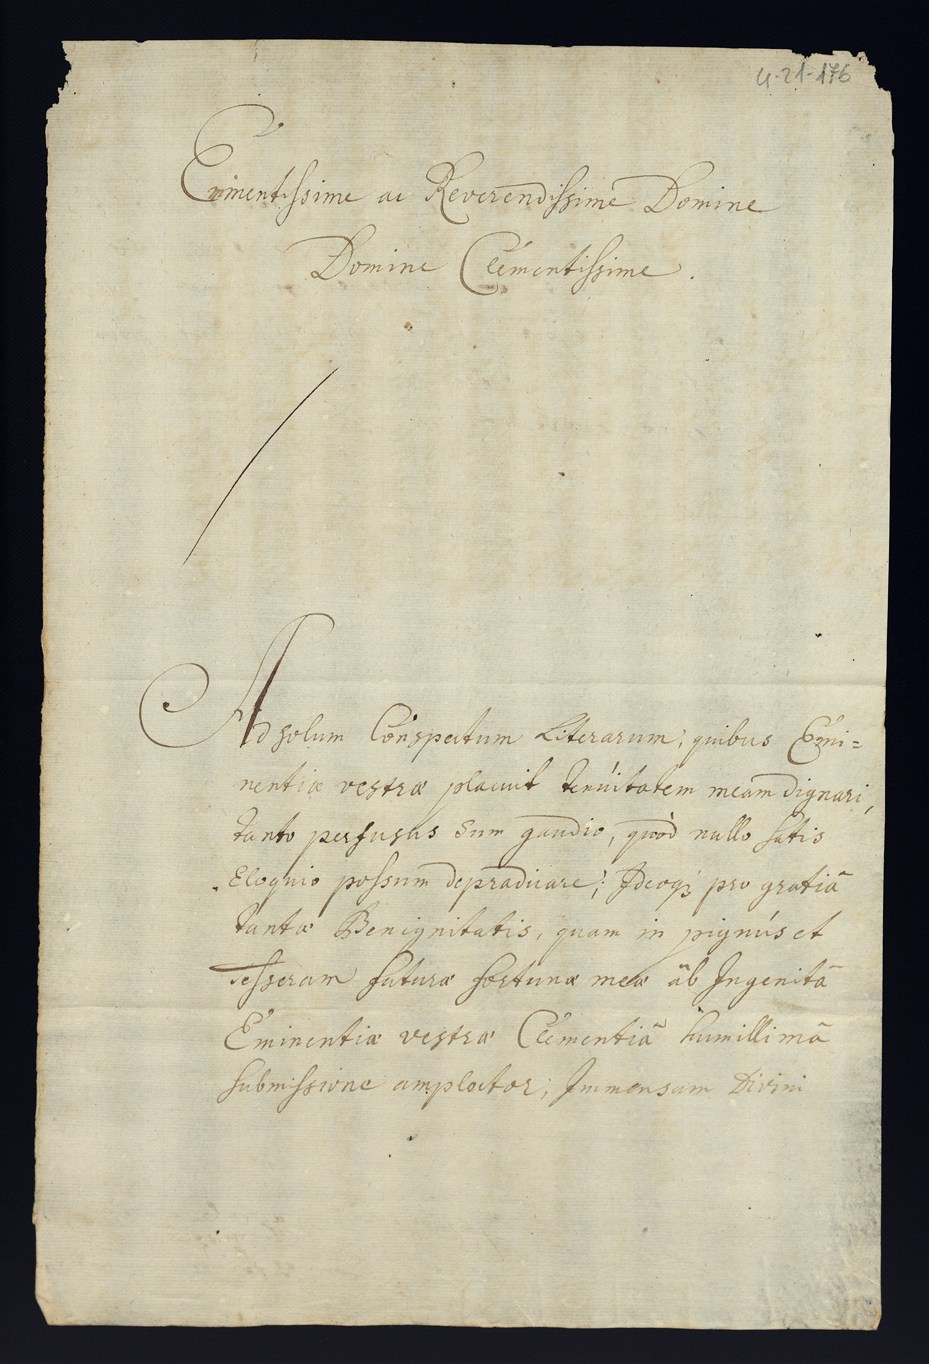 4-21-176
Eminentissime ac Reverendissime Domine
Domine Clementissime.
Ad solum Conspectum Literarum, quibus Emi=
nentiæ vestræ placuit tenuitatem meam dignari,
tanto perfusus sum gaudio, quòd nullo satis
Eloquio possum depradicare; Ideoq; pro gratiâ
tantæ Benignitatis, quam in pignus et
Tesseram futuræ fortunæ meæ âb Ingenitâ
Eminentiæ vestræ Clementiâ humillimâ
submissione amplector; Immensam Divini